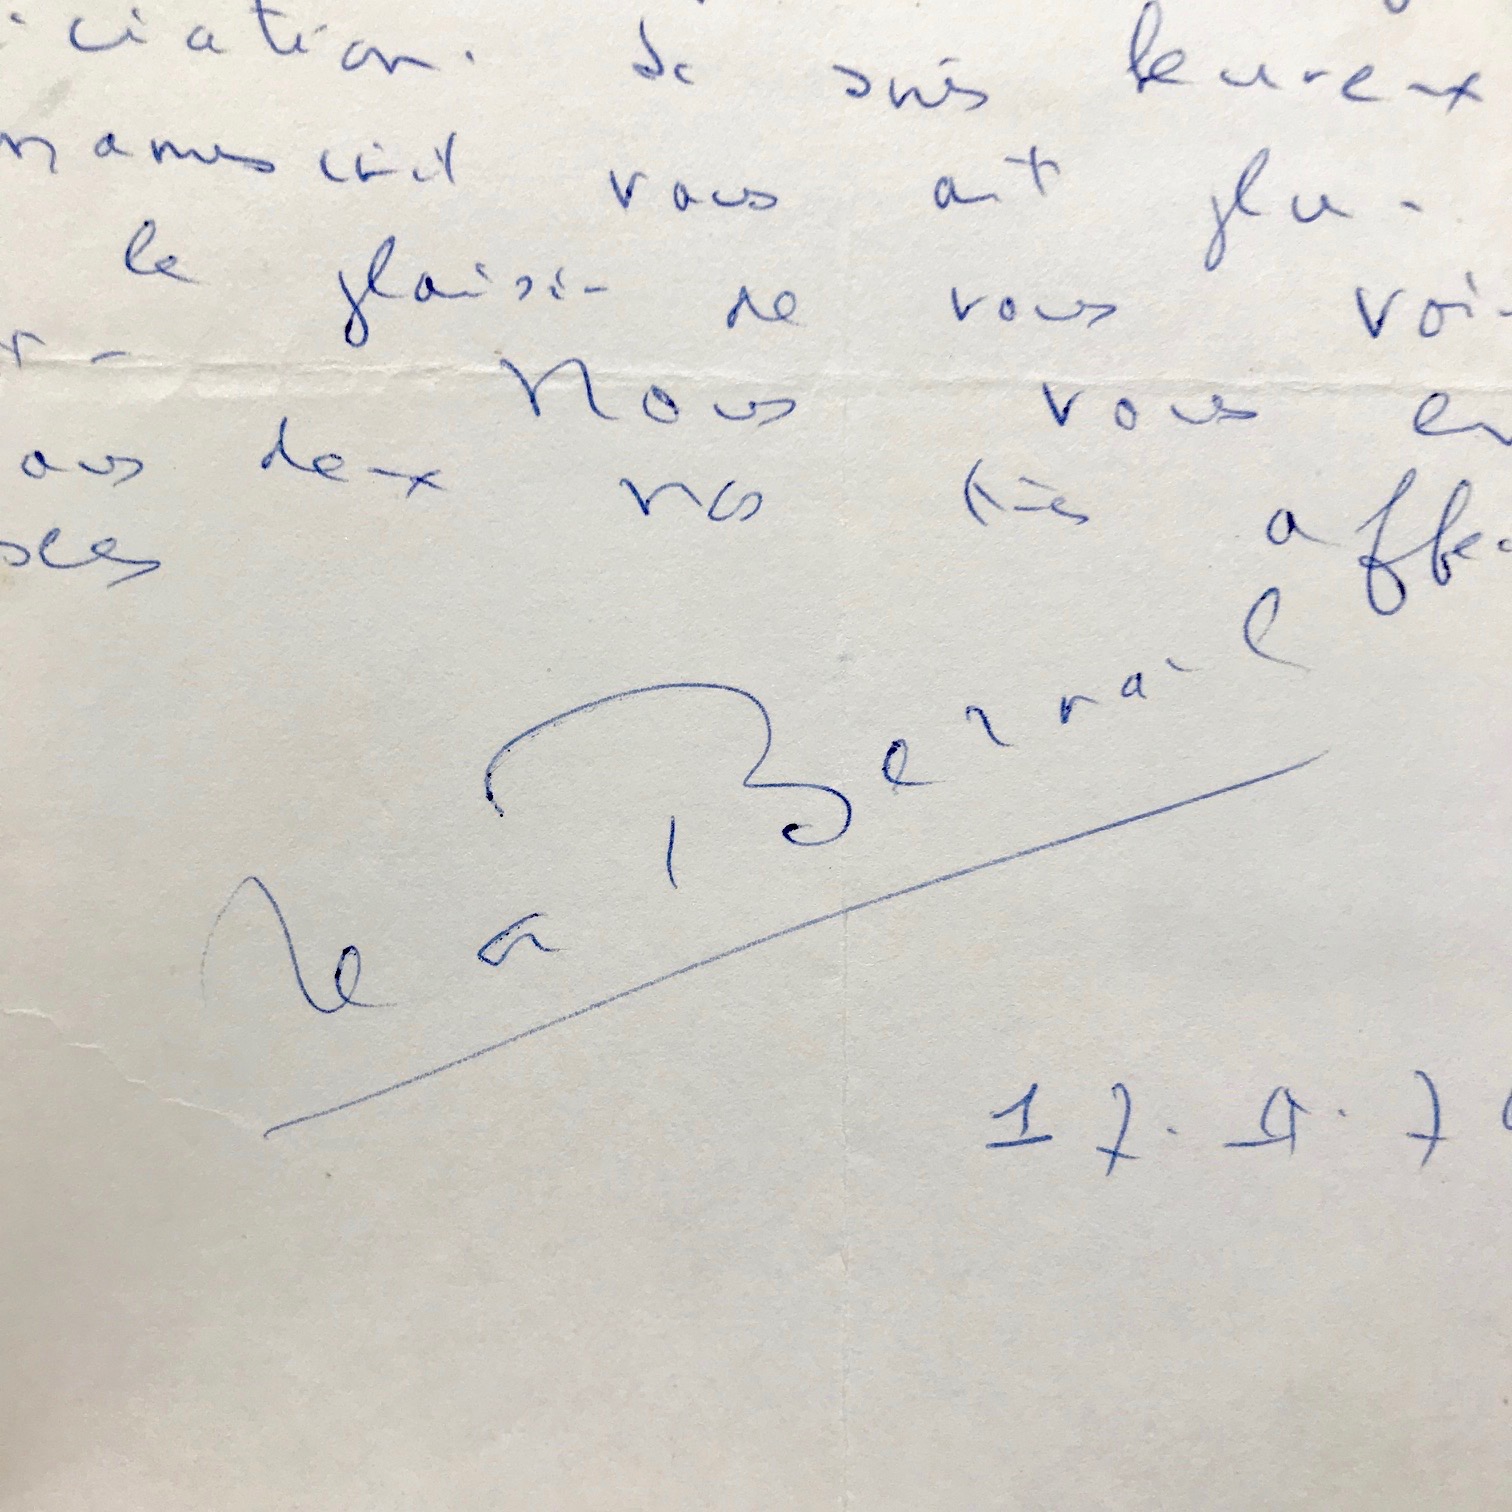 ciation. Je suis heureux
manuscrit vous ait plu.
le plaisir de vous voir
Nous vous en
ous deux nos très affec
sées
Jean Bernail
17. 9. 7